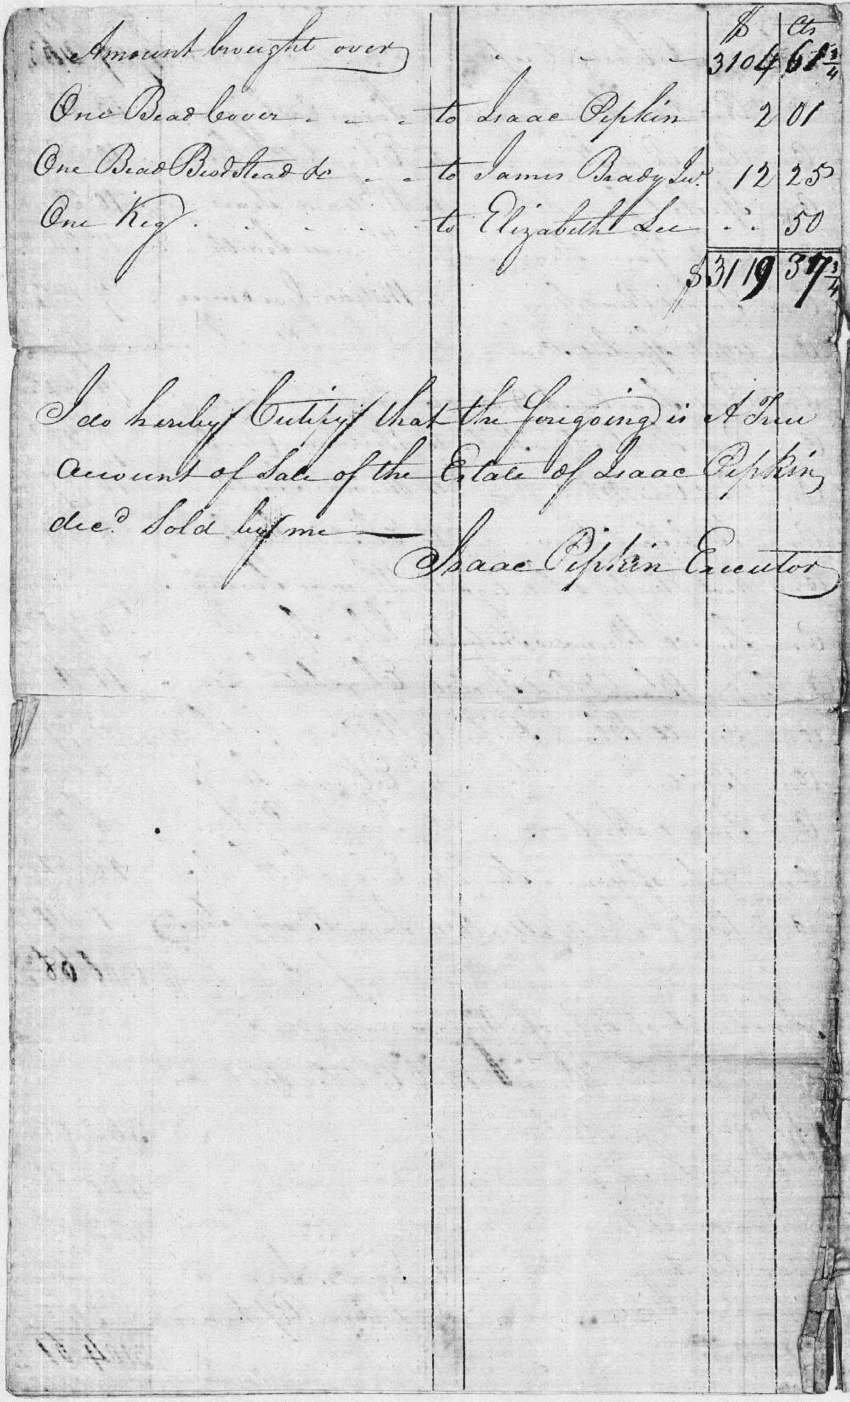 $ Cts
Amount brought over - - - 3104 61 3/4
One Bead Cover - - - to Isaac Pipkin 2 01
One Bead Beadstead &c - - to James Brady Junr. 12 25
One Keg . . . . to Elizabeth Lee . . 50
$3119 37 3/4
I do hereby Certify that the foregoing is A True
account of Sale of the Estate of Isaac Pipkin
decd. Sold by me —
Isaac Pipkin Executor